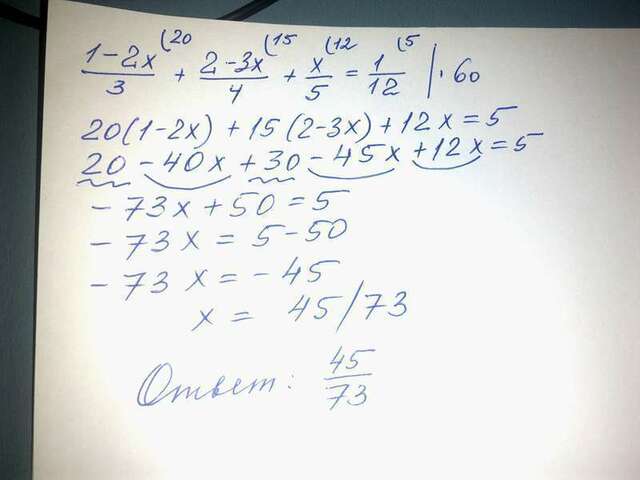 (20 (15 (12 (5
1-2x/3 + 2-3x/4 + x/5 = 1/12 | · 60
20(1-2x) + 15(2-3x) + 12x = 5
20 - 40x + 30 - 45x + 12x = 5
- 73x + 50 = 5
- 73x = 5 - 50
- 73x = - 45
x = 45/73
Ответ: 45/73